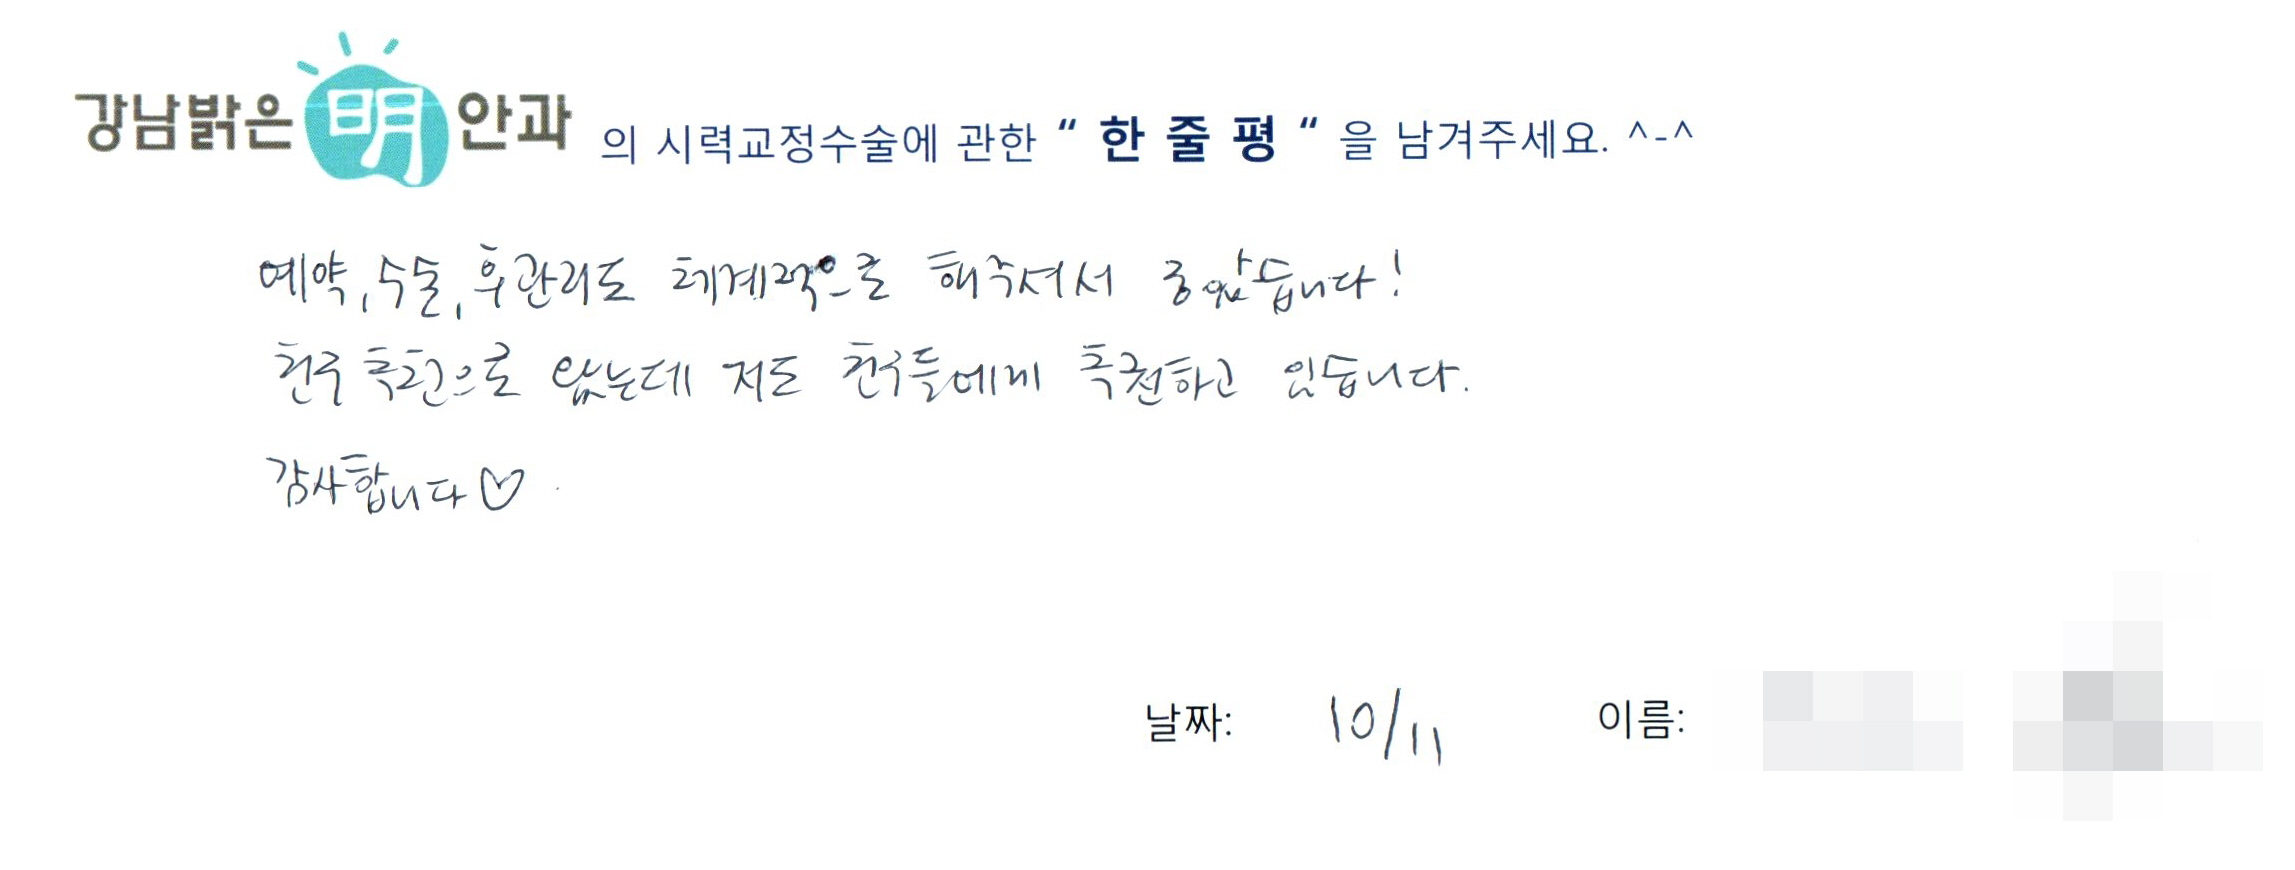 강남밝은 明 안과 의 시력교정수술에 관한 “ 한 줄 평 “ 을 남겨주세요. ^-^
예약, 수술, 후관리도 체계적으로 해주셔서 좋았습니다!
친구 추천으로 왔는데 저도 친구들에게 추천하고 있습니다.
감사합니다♡
날짜: 10/11 이름: